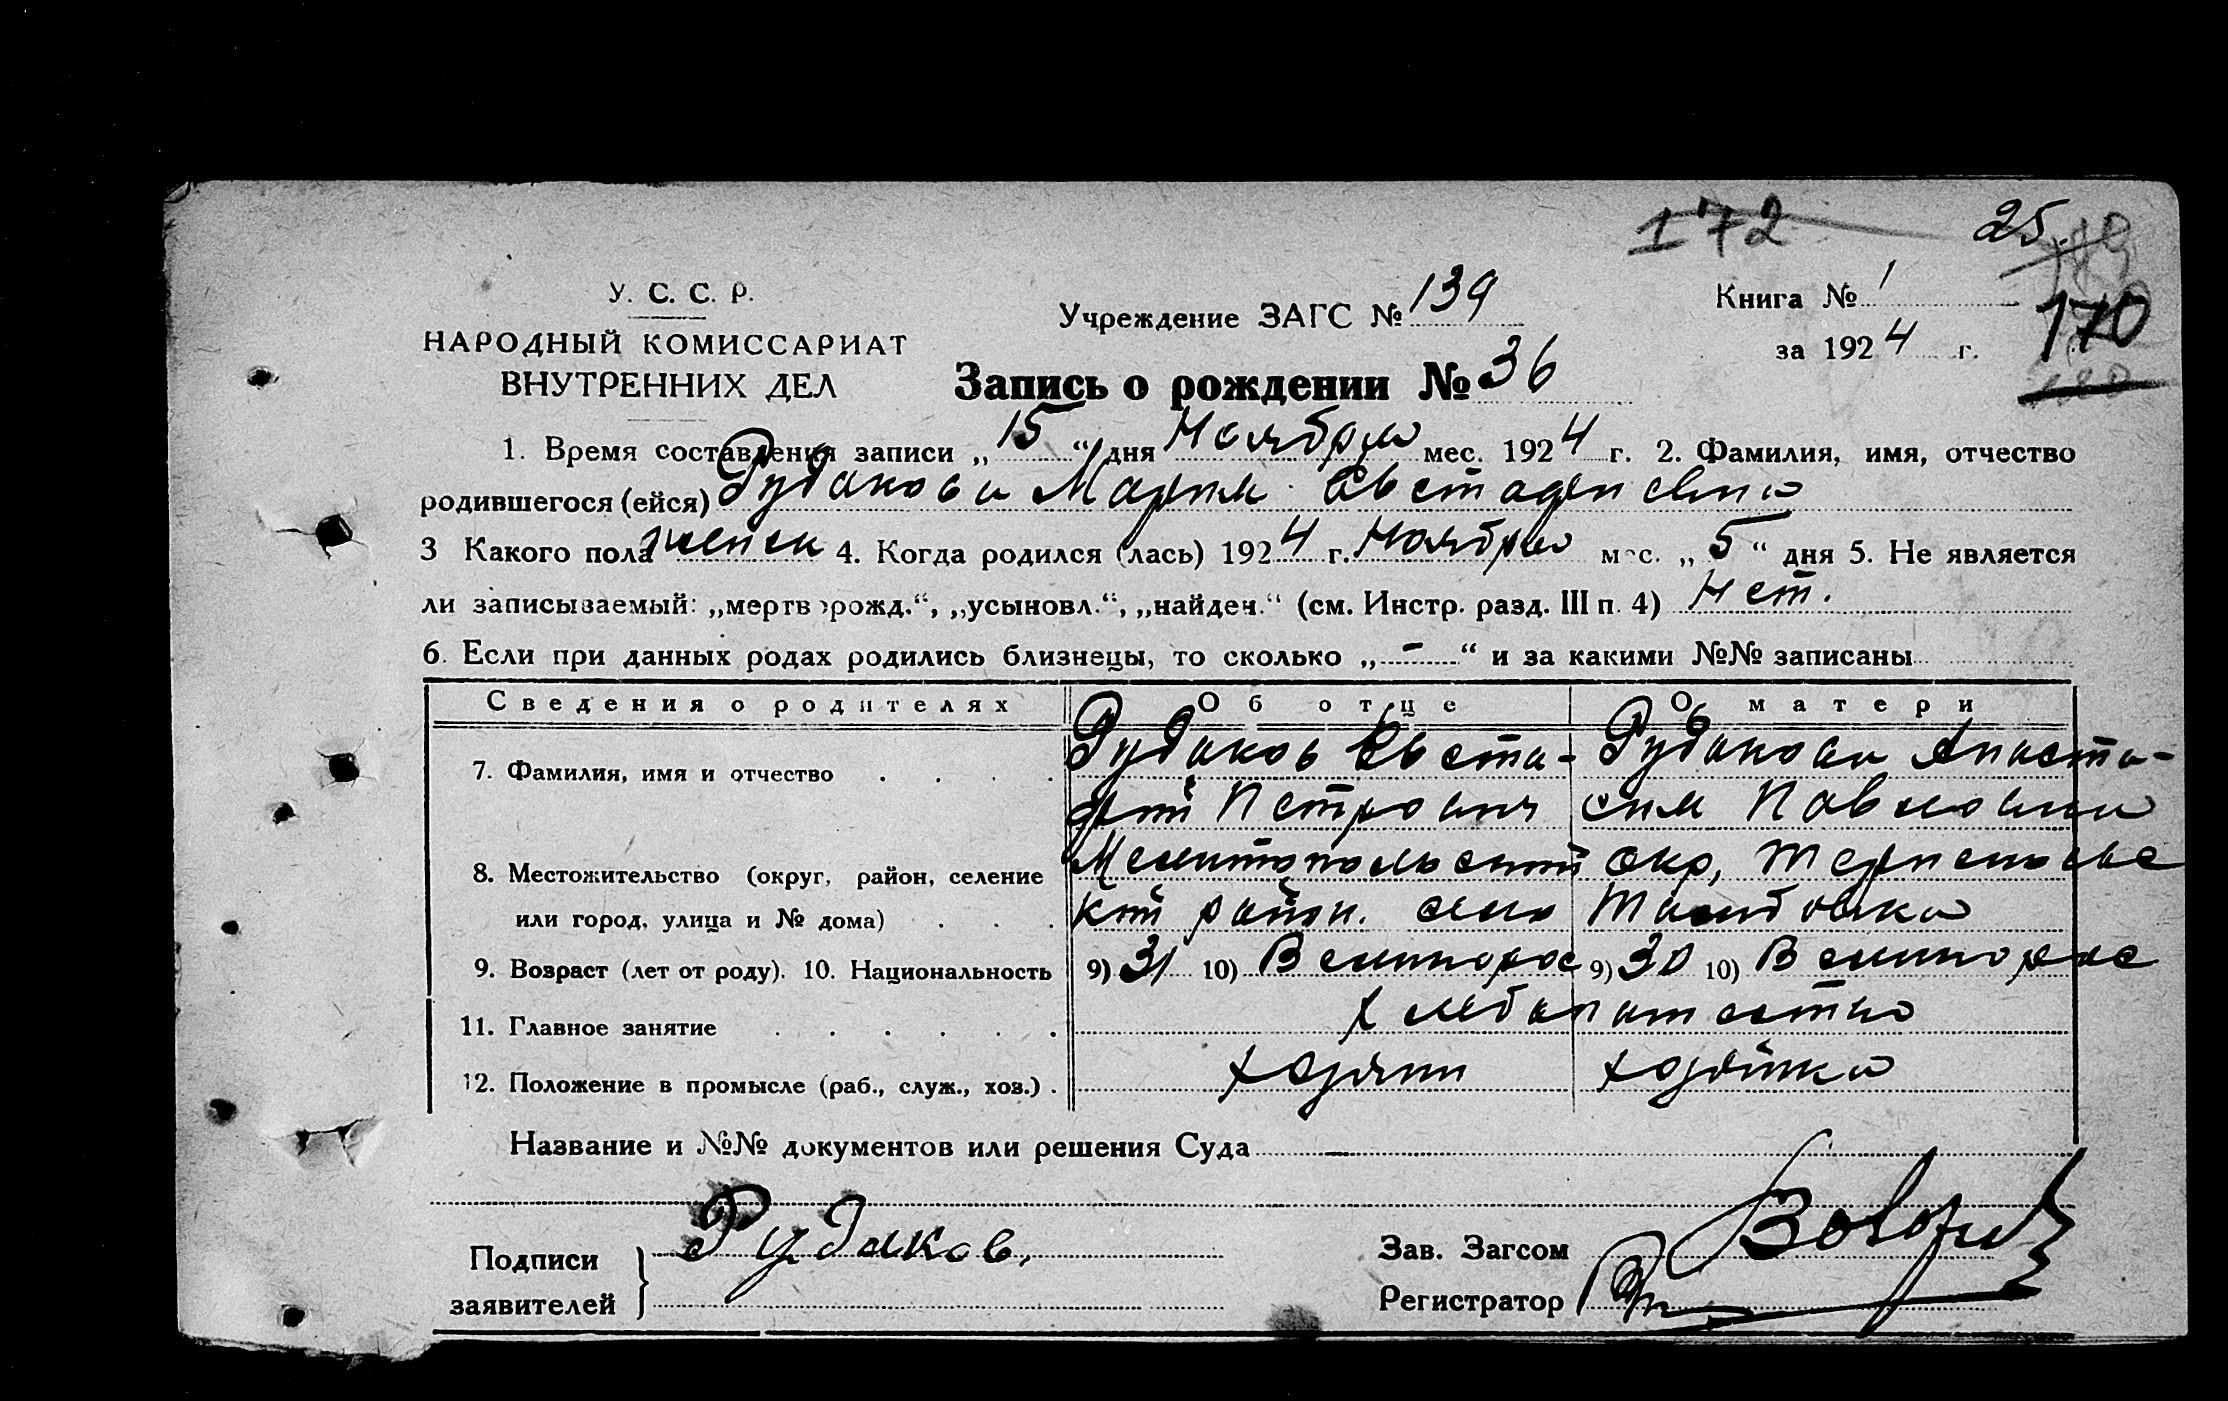 172 25.
У. С. С. Р.
НАРОДНЫЙ КОМИССАРИАТ
ВНУТРЕННИХ ДЕЛ
Учреждение ЗАГС № 139
Книга № 1
за 1924 г.
170
Запись о рождении № 36
1. Время составления записи „15“ дня Ноября мес. 1924 г. 2. Фамилия, имя, отчество
родившегося (ейся) Рудакова Мария Евстафиевна
3 Какого пола женск 4. Когда родился (лась) 1924 г. Ноября мес. „5“ дня 5. Не является
ли записываемый: „мертворожд.“, „усыновл.“, „найден.“ (см. Инстр. разд. III п. 4) Нет.
6. Если при данных родах родились близнецы, то сколько „-“ и за какими №№ записаны
Сведения о родителях Об отце О матери
7. Фамилия, имя и отчество Рудаков Евста- Рудакова Анаста-
фий Петрович сия Павловна
8. Местожительство (округ, район, селение Мелитопольский окр, Терпеньевс
или город, улица и № дома) кий район. село
9. Возраст (лет от роду). 10. Национальность 9) 31 10) Великорос 9) 30 10) Великорос
11. Главное занятие хлебопашество
12. Положение в промысле (раб., служ., хоз.) хозяин хозяйка
Название и №№ документов или решения Суда —
Подписи заявителей Рудаков.
Зав. Загсом
Регистратор